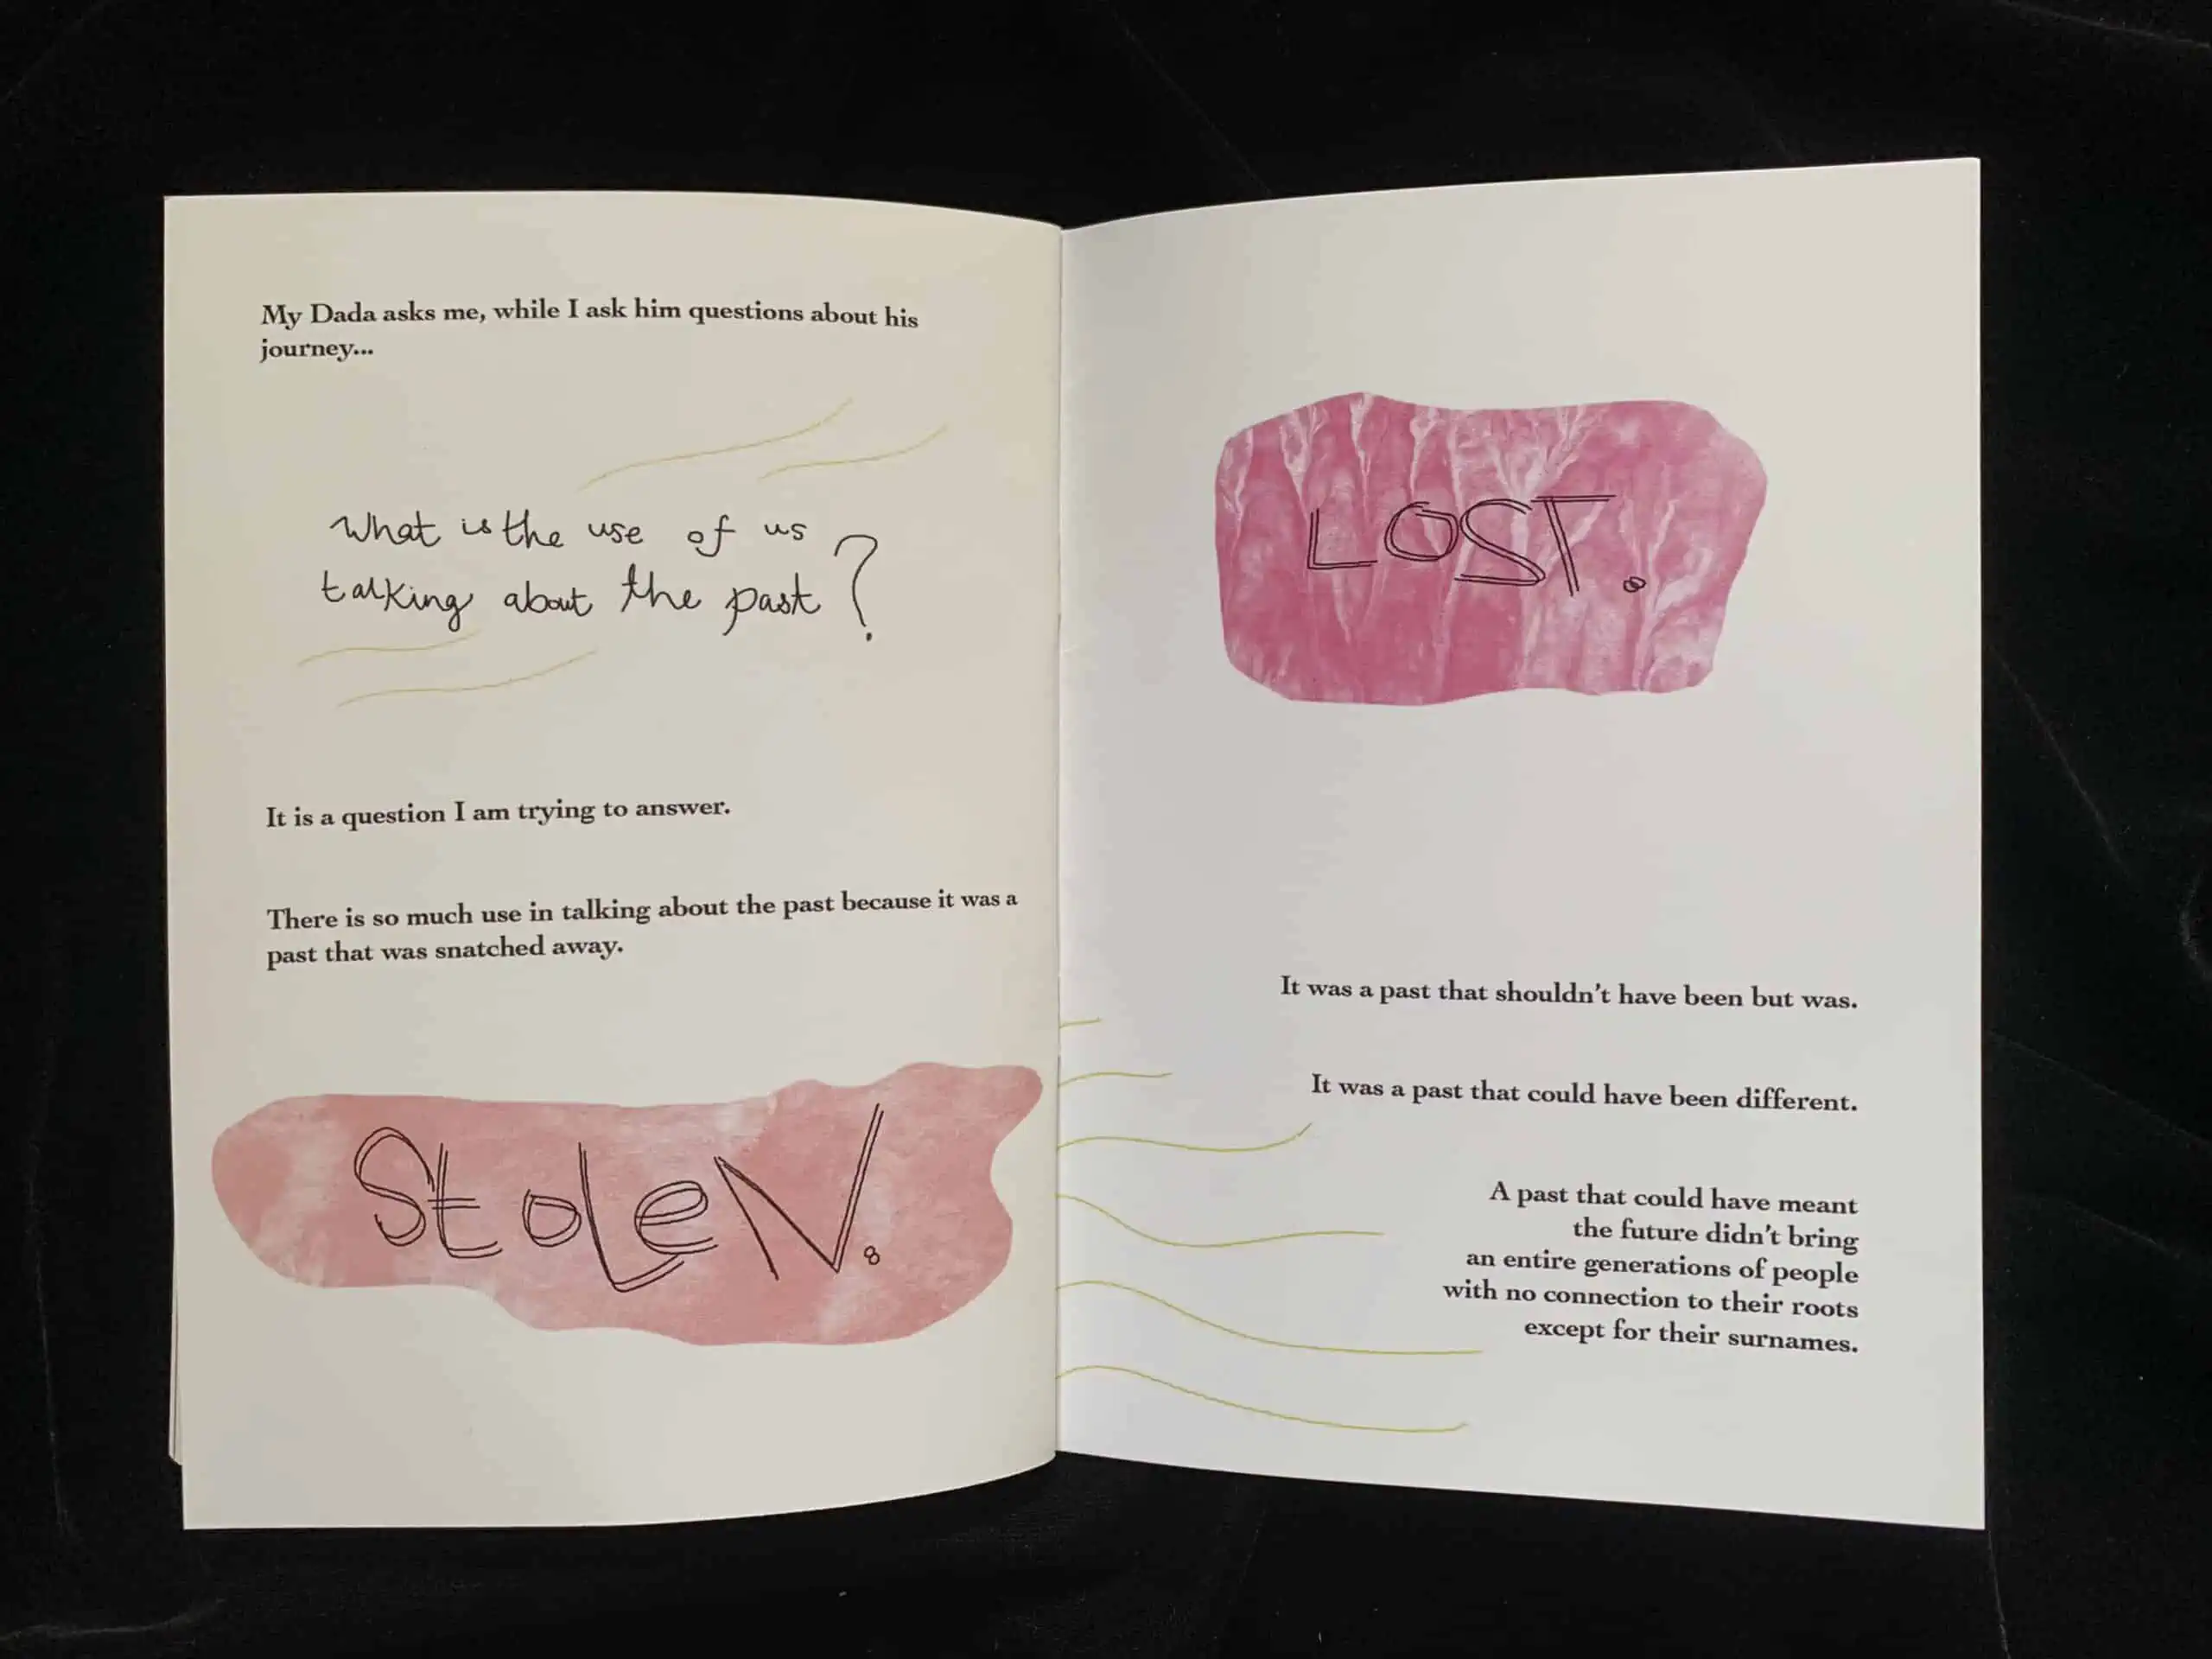 My Dada asks me, while I ask him questions about his
journey...
What is the use of us
talking about the past?
It is a question I am trying to answer.
There is so much use in talking about the past because it was a
past that was snatched away.
StoLeN.
LOST.
It was a past that shouldn't have been but was.
It was a past that could have been different.
A past that could have meant
the future didn't bring
an entire generations of people
with no connection to their roots
except for their surnames.